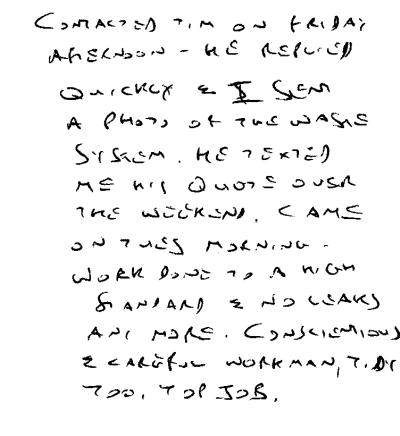 CONTACTED TIM ON FRIDAY
AFTERNOON - HE REPLIED
QUICKLY & I SENT
A PHOTO OF THE WASTE
SYSTEM. HE TEXTED
ME HIS QUOTE OVER
THE WEEKEND. CAME
ON TUES MORNING.
WORK DONE TO A HIGH
STANDARD & NO LEAKS
ANY MORE. CONSCIENTIOUS
& CAREFUL WORKMAN, TIDY
TOO. TOP JOB.